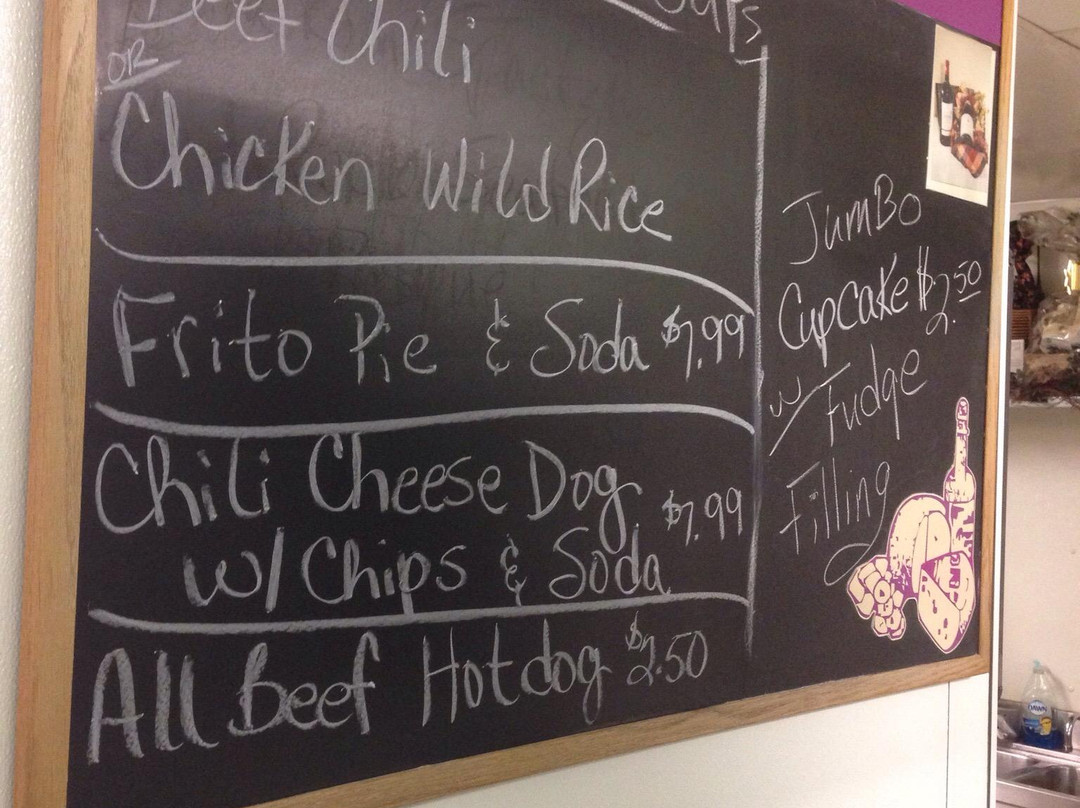 Beef Chili
OR
Chicken Wild Rice
Frito Pie & Soda $7.99
Chili Cheese Dog $7.99
w/ Chips & Soda
All Beef Hotdog $2.50
JumBo
Cupcake $2.50
w/ Fudge
Filling
DAWN